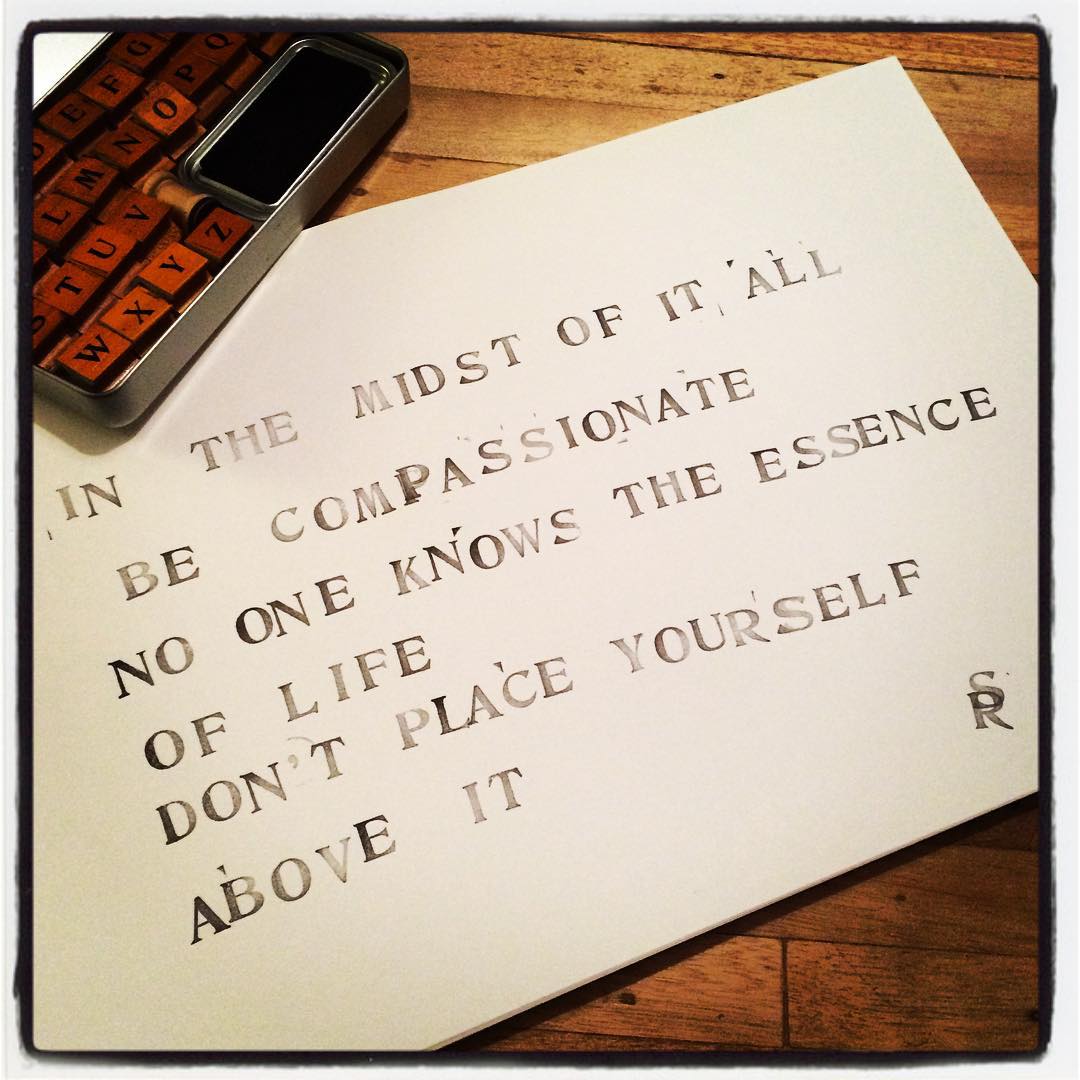 E F G
L M N O P Q
S T U V
W X Y Z
IN THE MIDST OF IT ALL
BE COMPASSIONATE
NO ONE KNOWS THE ESSENCE
OF LIFE
DON'T PLACE YOURSELF
ABOVE IT
SR